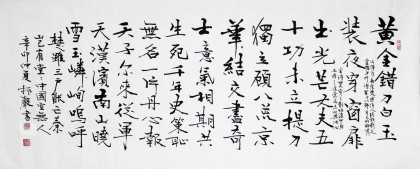 黄金錯刀白玉
装夜穿窗扉
出光芒丈夫五
十功未立提刀
獨立顧八荒京
華結交盡奇
士意氣相期共
生死千年史策恥
無名一片丹心報
天子尔来從軍
天漢濱南山曉
雪玉嶙峋嗚呼
楚雖三户能亡秦
豈有堂堂中國空無人
辛卯仲夏 書